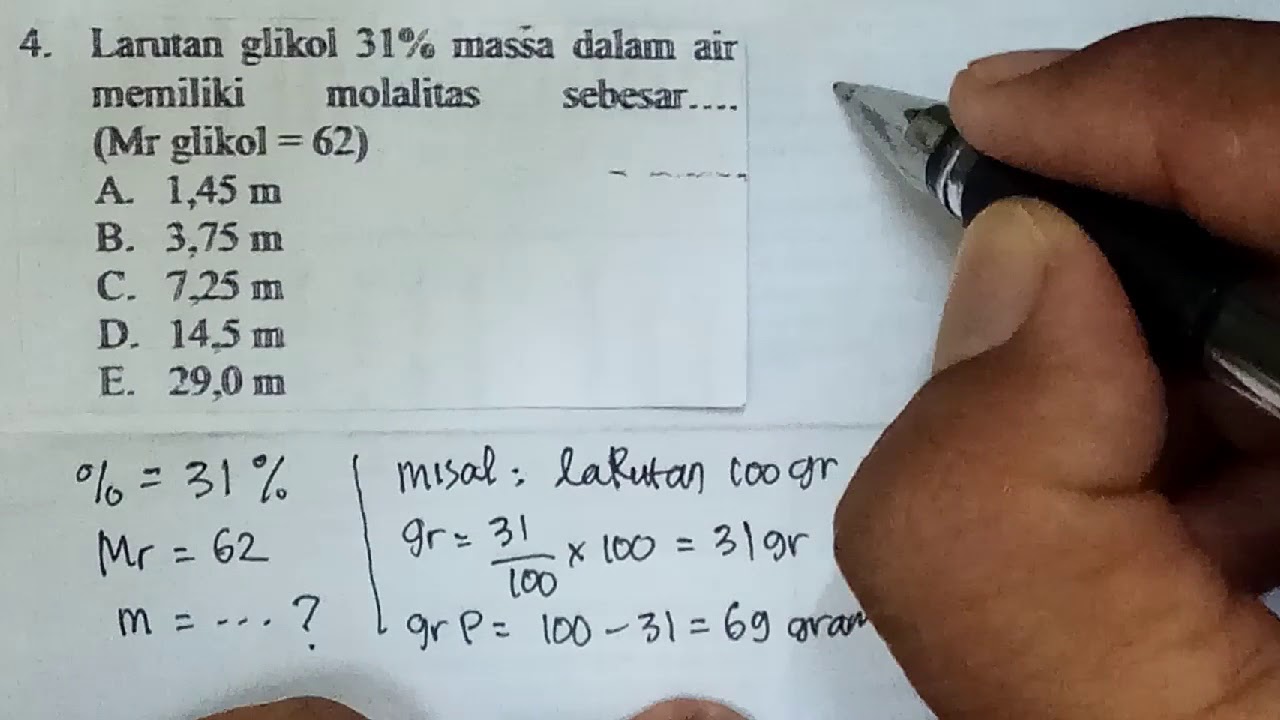 4. Larutan glikol 31% massa dalam air
memiliki molalitas sebesar....
(Mr glikol = 62)
A. 1,45 m
B. 3,75 m
C. 7,25 m
D. 14,5 m
E. 29,0 m
% = 31 %
Mr = 62
m = .... ?
misal : laRutan 100 gr
gr = 31/100 x 100 = 31 gr
gr P = 100 - 31 = 69 gram